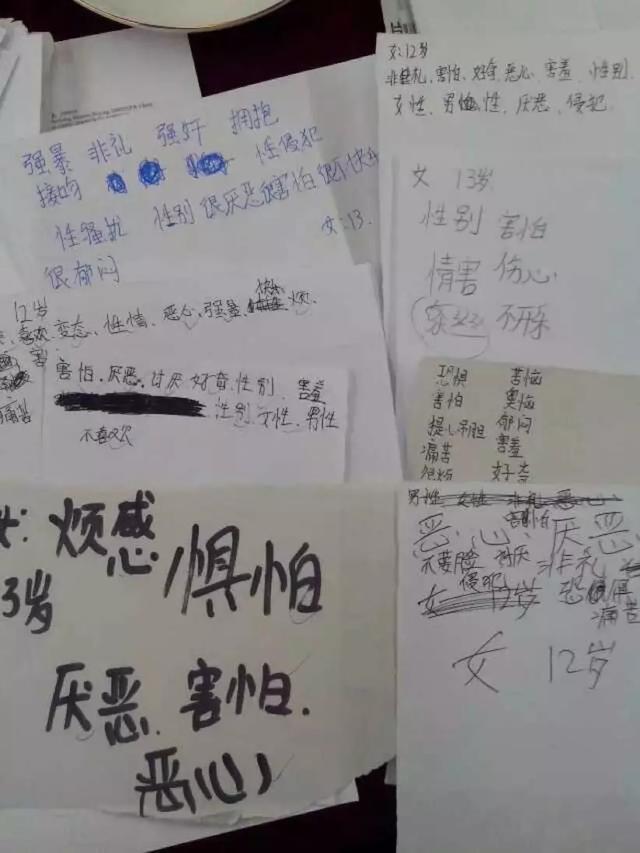 强暴 非礼 强奸 拥抱
接吻 性侵犯
性骚扰 性别 很厌恶 很害怕 很不快乐
女:13.
很郁闷
女:12岁
非礼、害怕、好奇、恶心、害羞、性别、
女性、男性、厌恶、侵犯.
女 13岁
性别 害怕
情害 伤心
不开乐
12岁
喜欢、变态、性情、恶心、强暴、烦.
害
痛苦
害怕.厌恶.讨厌 好奇.性别、害羞
性别、女性、男性
不喜欢
恐惧 苦恼
害怕 奥恼
提心吊胆 郁闷
痛苦 害羞
很烦 好奇
女: 烦感
惧怕
13岁
厌恶. 害怕.
恶心
男性 女性 非礼 恶心
害怕
恶心、厌恶
不要脸 讨厌 非礼
侵犯
女 12岁 恐惧
痛苦
女 12岁